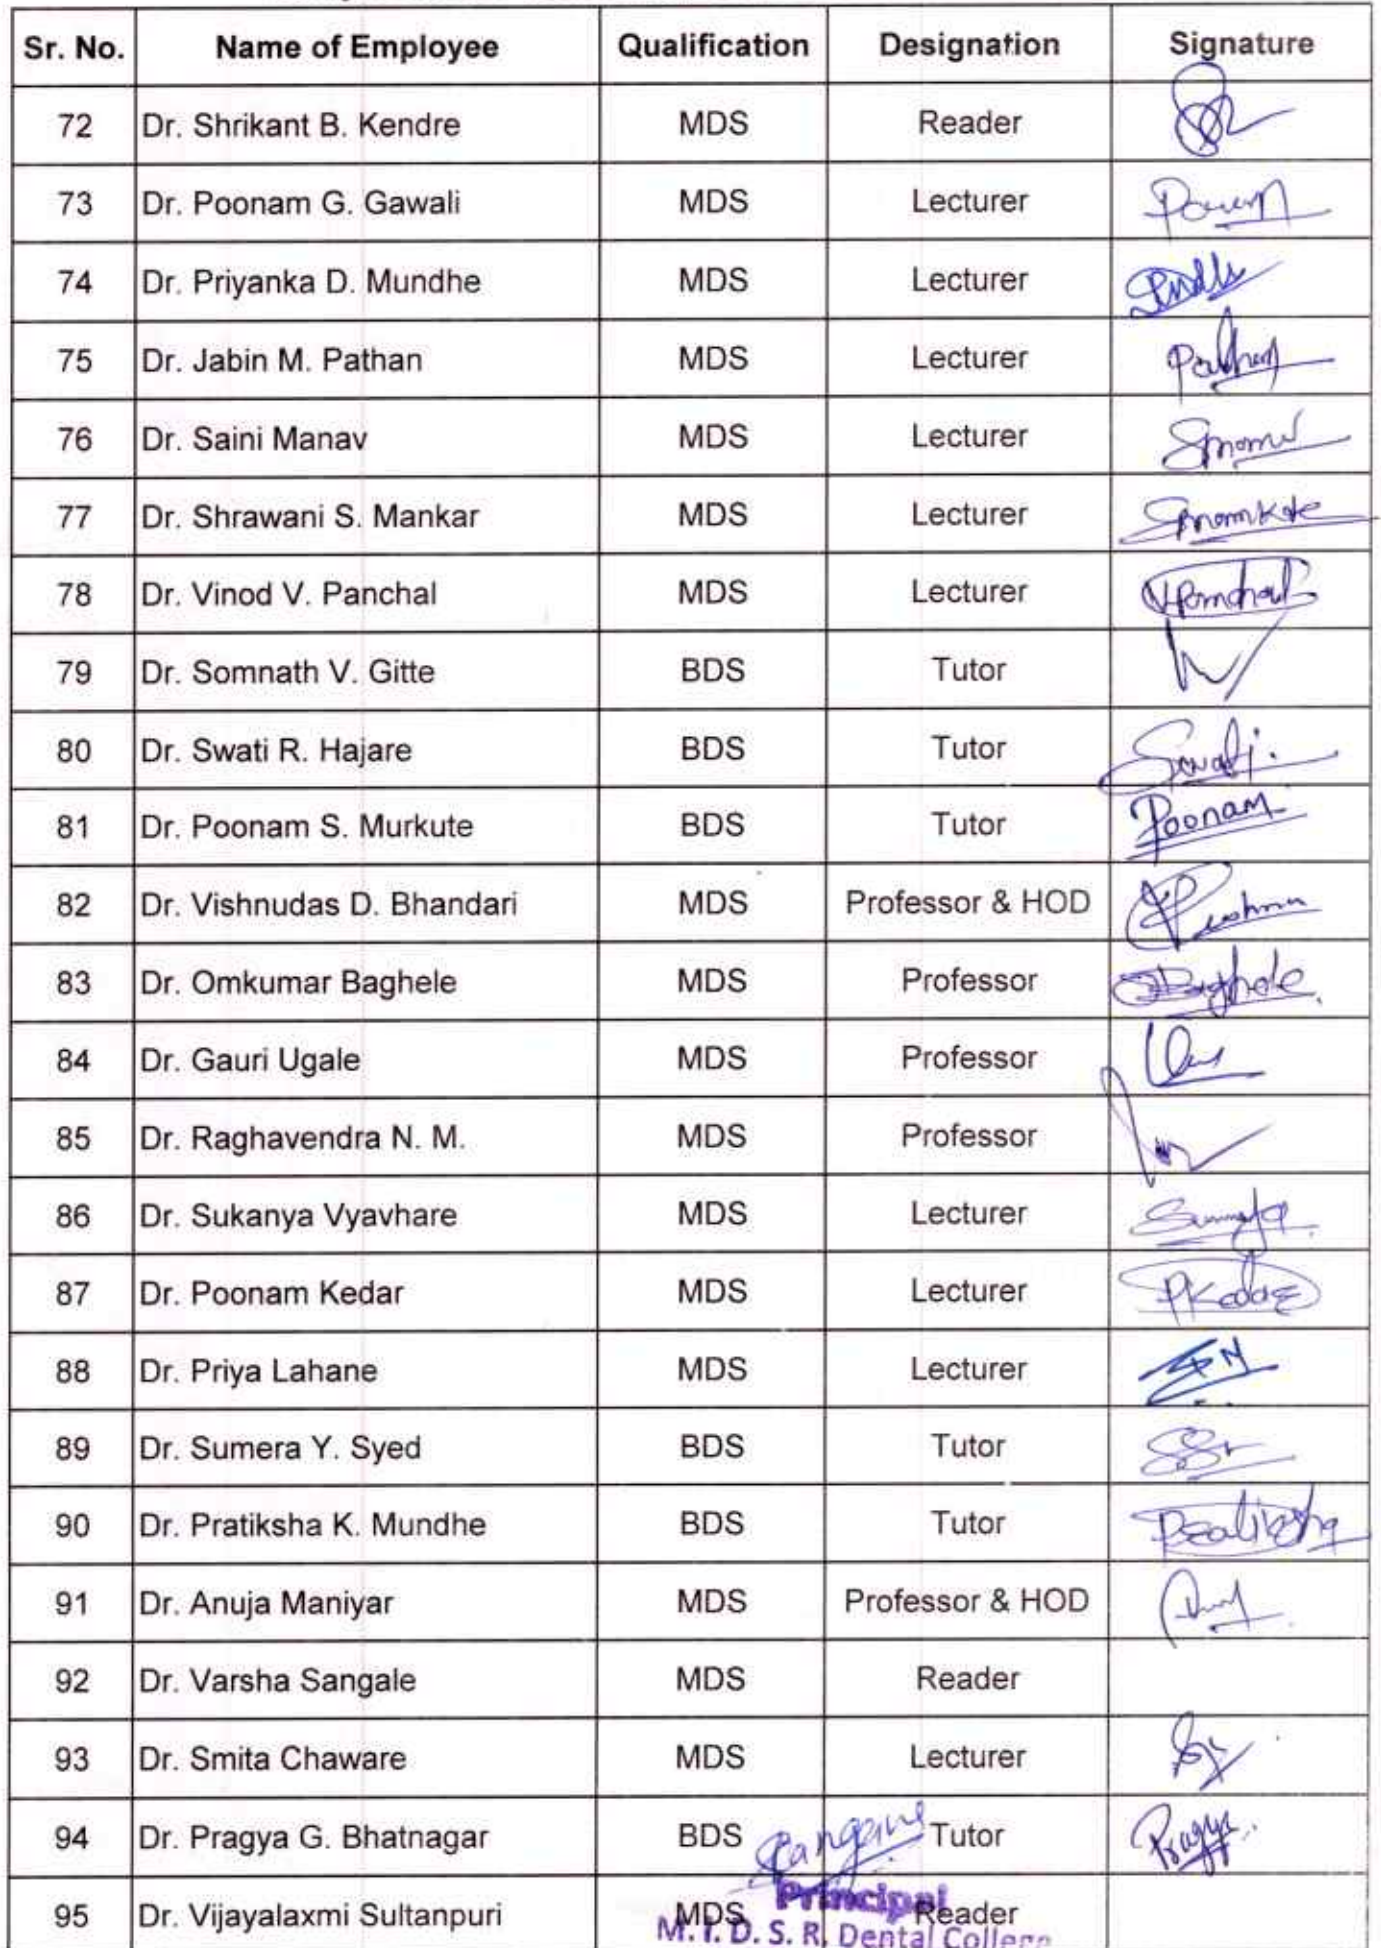 Sr. No. Name of Employee Qualification Designation Signature
72 Dr. Shrikant B. Kendre MDS Reader
73 Dr. Poonam G. Gawali MDS Lecturer
74 Dr. Priyanka D. Mundhe MDS Lecturer
75 Dr. Jabin M. Pathan MDS Lecturer Pathan
76 Dr. Saini Manav MDS Lecturer
77 Dr. Shrawani S. Mankar MDS Lecturer
78 Dr. Vinod V. Panchal MDS Lecturer VPanchal
79 Dr. Somnath V. Gitte BDS Tutor
80 Dr. Swati R. Hajare BDS Tutor Swati
81 Dr. Poonam S. Murkute BDS Tutor Poonam
82 Dr. Vishnudas D. Bhandari MDS Professor & HOD
83 Dr. Omkumar Baghele MDS Professor OBaghele
84 Dr. Gauri Ugale MDS Professor
85 Dr. Raghavendra N. M. MDS Professor
86 Dr. Sukanya Vyavhare MDS Lecturer
87 Dr. Poonam Kedar MDS Lecturer PKedar
88 Dr. Priya Lahane MDS Lecturer
89 Dr. Sumera Y. Syed BDS Tutor
90 Dr. Pratiksha K. Mundhe BDS Tutor Pratiksha
91 Dr. Anuja Maniyar MDS Professor & HOD
92 Dr. Varsha Sangale MDS Reader
93 Dr. Smita Chaware MDS Lecturer
94 Dr. Pragya G. Bhatnagar BDS Tutor Pragya
95 Dr. Vijayalaxmi Sultanpuri MDS Reader
Principal
M.I.D.S.R. Dental College